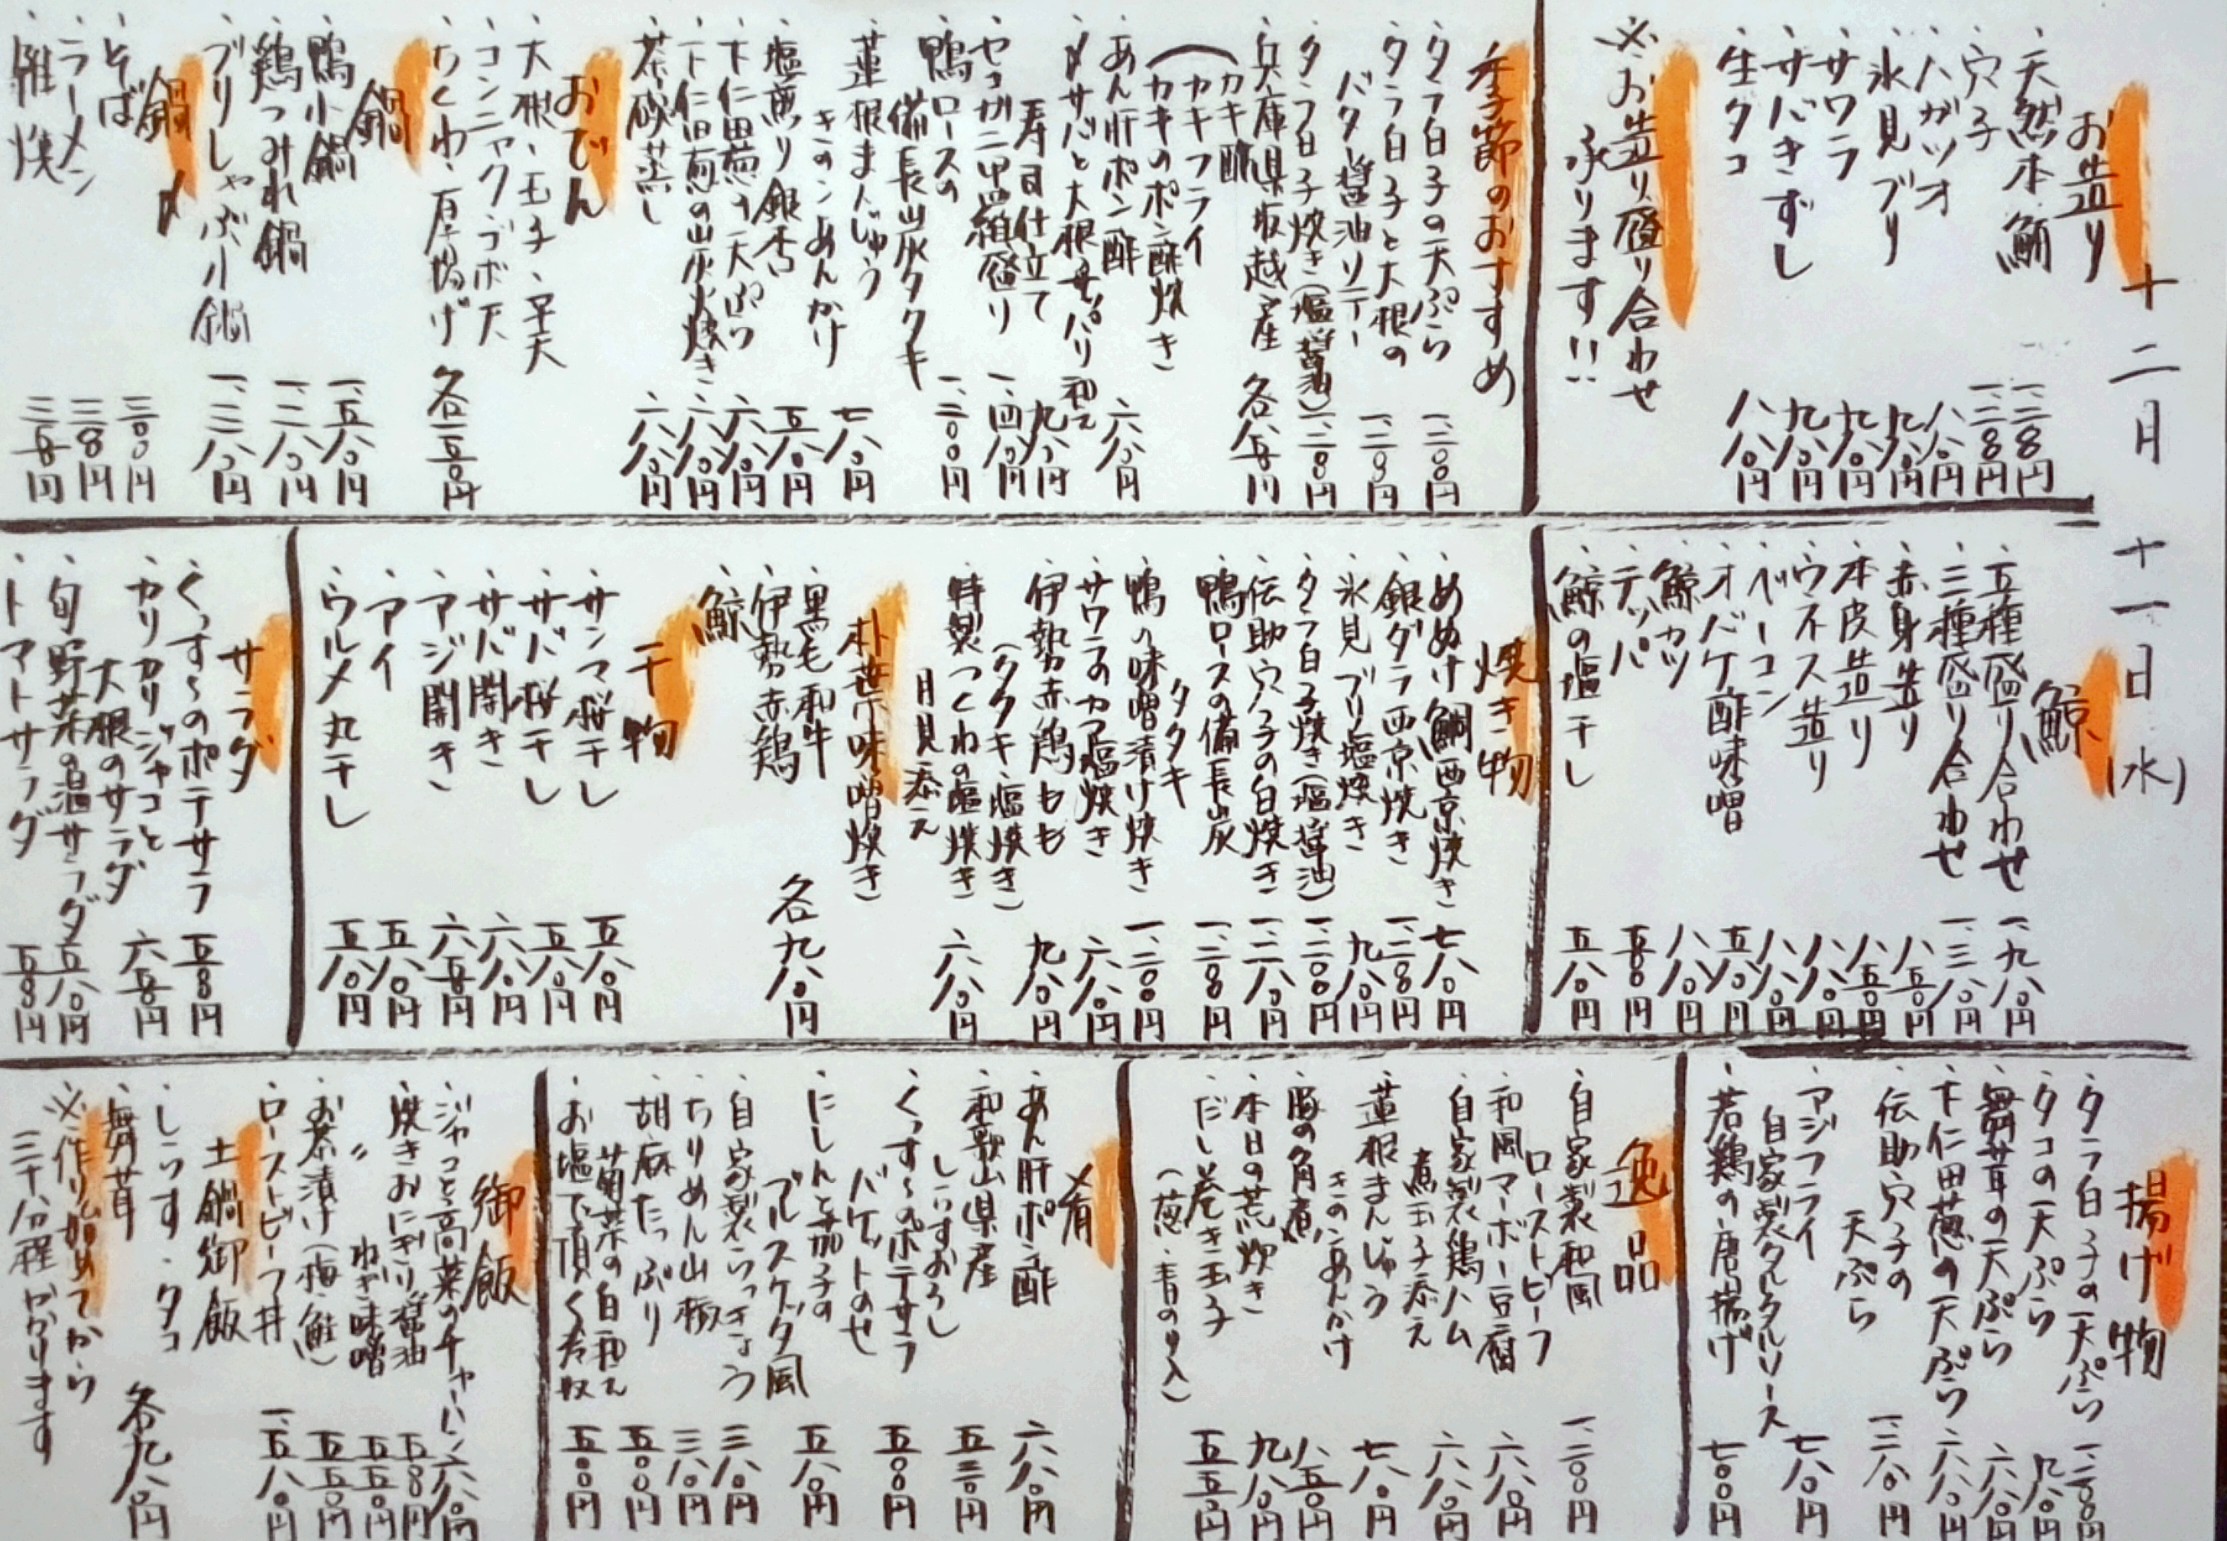 十二月十一日(水)
お造り
・天然本鮪 一、二八〇円
・穴子 一、二八〇円
・ハガツオ 八八〇円
・氷見ブリ 九八〇円
・サワラ 九八〇円
・サバきずし 九八〇円
・生タコ 八八〇円
※お造り盛り合わせ
承ります!!
季節のおすすめ
・タラ白子の天ぷら 一、二〇〇円
・タラ白子と大根の
バター醤油ソテー 一、二八〇円
・タラ白子焼き(塩・醤油) 一、二〇〇円
・兵庫県坂越産 各八五〇円
(カキ酢
カキフライ
カキのポン酢炊き
・あん肝ポン酢 六八〇円
・〆サバと大根のサッパリ和え
寿司仕立て 九八〇円
・セコガニ甲羅盛り 一、四八〇円
・鴨ロースの
備長炭タタキ 一、二〇〇円
・蓮根まんじゅう
きのこあんかけ 七八〇円
・塩煎り銀杏 五八〇円
・下仁田葱の天ぷら 六八〇円
・下仁田葱の炭火焼き 六八〇円
・茶碗蒸し 六八〇円
おでん
・大根・玉子・平天
・コンニャク・ゴボ天
・ちくわ・厚揚げ 各二五〇円
鍋
・鴨小鍋 一、五八〇円
・鶏つみれ鍋 一、二八〇円
・ブリしゃぶ小鍋 一、三八〇円
鍋〆
・そば 三〇〇円
・ラーメン 三八〇円
・雑炊 三五〇円
鯨
・五種盛り合わせ 一、九八〇円
・三種盛り合わせ 一、三八〇円
・赤身造り 八五〇円
・本皮造り 八五〇円
・ウネス造り 八八〇円
・ベーコン 八八〇円
・オバケ酢味噌 五八〇円
・鯨カツ 八八〇円
・テッパ 五八〇円
・鯨の塩干し 五八〇円
焼き物
・めぬけ鯛西京焼き 七八〇円
・銀ダラ西京焼き 一、二八〇円
・氷見ブリ塩焼き 九八〇円
・タラ白子焼き(塩・醤油) 一、二〇〇円
・伝助穴子の白焼き 一、二八〇円
・鴨ロースの備長炭
タタキ 一、二〇〇円
・鴨の味噌漬け焼き 一、二〇〇円
・サワラのカマ塩焼き 六八〇円
・伊勢赤鶏もも
(タタキ・塩焼き) 九八〇円
・特製つくねの塩焼き
月見添え 六八〇円
朴葉味噌焼き
・黒毛和牛
・伊勢赤鶏
・鯨
各九八〇円
干物
・サンマ桜干し 五八〇円
・サバ桜干し 五八〇円
・サバ開き 六八〇円
・アジ開き 六五〇円
・アイ 五八〇円
・ウルメ丸干し 五八〇円
サラダ
・くっすーのポテサラ 五〇〇円
・カリカリジャコと
大根のサラダ 六五〇円
・旬野菜の温サラダ 五八〇円
・トマトサラダ 五五〇円
揚げ物
・タラ白子の天ぷら 一、二〇〇円
・タコの天ぷら 九八〇円
・舞茸の天ぷら 六八〇円
・下仁田葱の天ぷら 六八〇円
・伝助穴子の
天ぷら 一、二八〇円
・アジフライ
自家製タルタルソース 七八〇円
・若鶏の唐揚げ 七〇〇円
逸品
・自家製和風
ローストビーフ 一、二〇〇円
・和風マーボー豆腐 六八〇円
・自家製鶏ハム
煮玉子添え 六八〇円
・蓮根まんじゅう
きのこあんかけ 七八〇円
・豚の角煮 八五〇円
・本日の荒炊き 九八〇円
・だし巻き玉子
(葱・青のり入) 五五〇円
肴
・あん肝ポン酢 六八〇円
・和歌山県産
しらすおろし 五三〇円
・くっすーのポテサラ
バケットのせ 五〇〇円
・にしんと茄子の
ブルスケッタ風 五八〇円
・自家製らっきょう 三八〇円
・ちりめん山椒 三八〇円
・胡麻たっぷり
菊菜の白和え 五〇〇円
・お塩で頂く冷奴 五〇〇円
御飯
・ジャコと高菜のチャーハン 六八〇円
・焼きおにぎり醤油 五〇〇円
〃 ねぎ味噌 五五〇円
・お茶漬け(梅・鮭) 五五〇円
・ローストビーフ丼 一、五八〇円
土鍋御飯
・しらす・タコ
・舞茸 各九八〇円
※作り始めてから
三十分程かかります